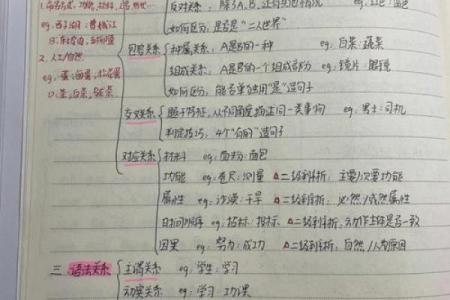 反对关系:除了A、B,还有其他情况 eg:红色:蓝色
如何区分:是否是“二人世界”
包容关系
种属关系:A是B的一种 eg:白菜:蔬菜
组成关系:A是B的一个组成部分 eg:镜片:眼镜
如何区分:能否单独用“是”造句子
交叉关系
题干特征,从不同角度描述同一类事物 eg:男士:司机
判定技巧,4个“有的”造句子
对应关系
材料 eg:面粉:面包
功能 eg:卷尺:测量 △二级辨析:主要/次要功能
属性 eg:沙漠:干旱 △二级辨析:必然/或然属性
时间顺序 eg:招标:投标 △二级辨析,动作主体是否一致
因果 eg:努力:成功 △二级辨析,自然/人为原因
三、语法关系
主谓关系 eg:学生:学习
动宾关系 eg:学习:功课
eg:西子湖:
2. 人工/自然